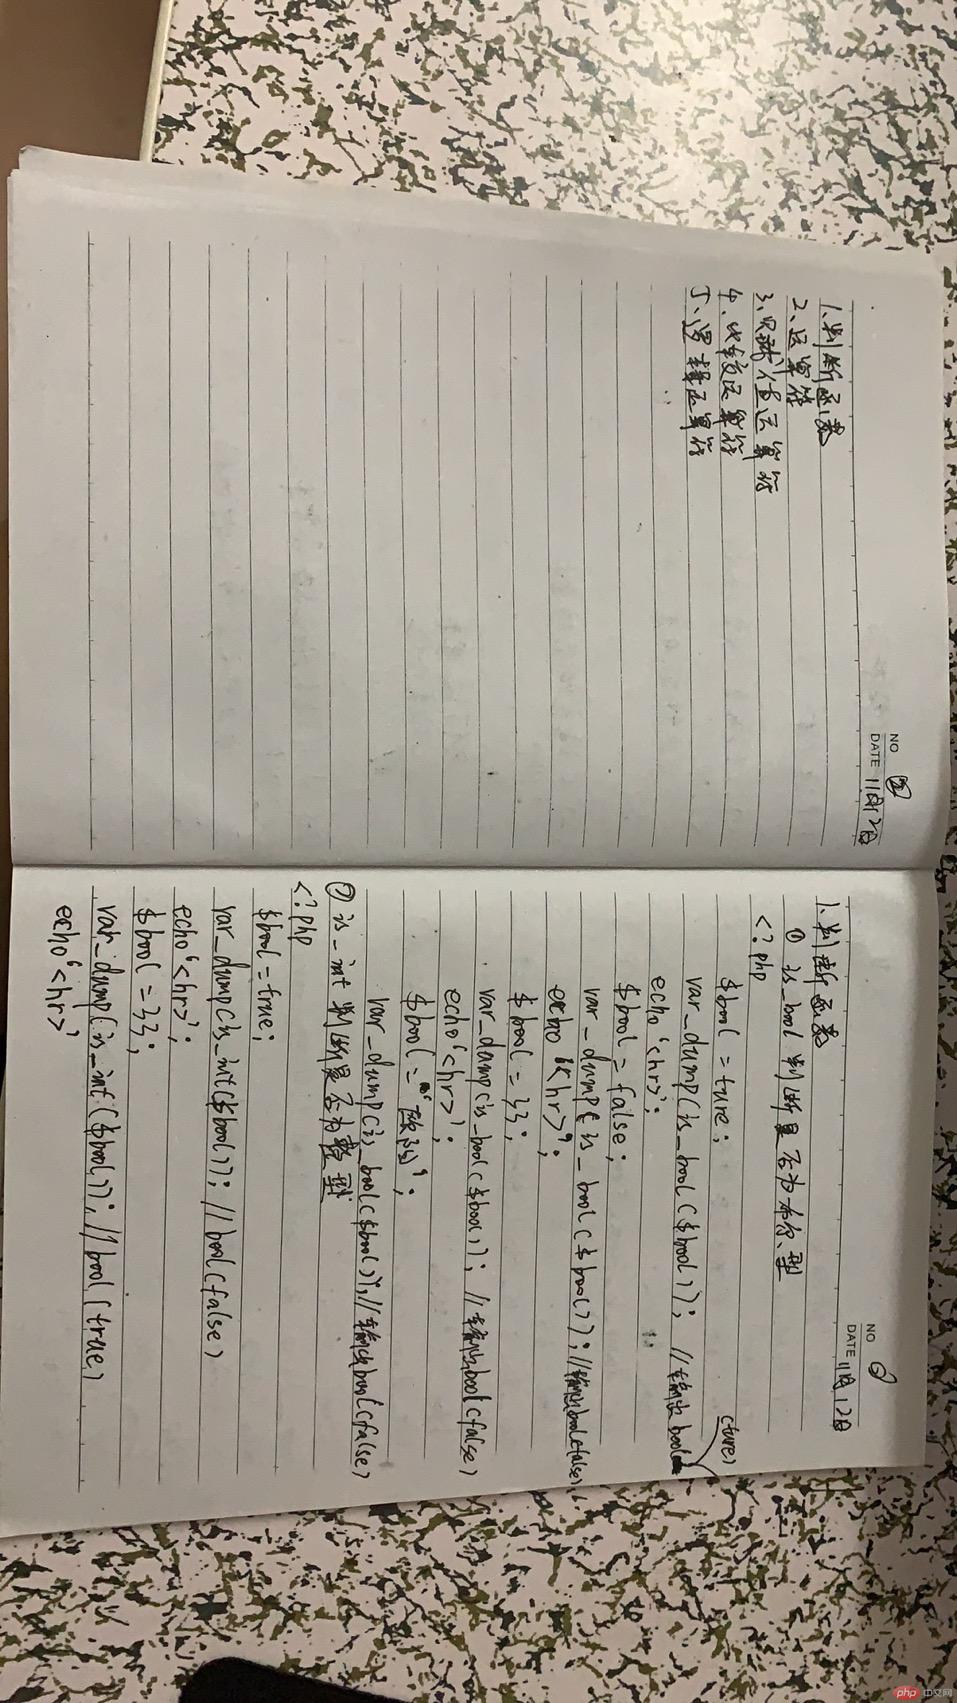 NO ②
DATE 11月12日
1、判断函数
2、运算符
3、赋值运算符
4、比较运算符
5、逻辑运算符
NO
DATE 11月12日
1、判断函数
① is_bool 判断是否为布尔型
<?php
$bool = ture;
(ture)
var_dump(is_bool($bool)); //输出bool
echo '<hr>';
$bool = false;
var_dump(is_bool($bool)); //输出bool(false)
echo '<hr>';
$bool = 33;
var_dump(is_bool($bool)); //输出bool(false)
echo '<hr>';
$bool =
var_dump(is_bool($bool)); //输出bool(false)
② is_int 判断是否为整型
<?php
$bool = true;
var_dump(is_int($bool)); //bool(false)
echo '<hr>';
$bool = 33;
var_dump(is_int($bool)); //bool(true)
echo '<hr>'
php 中文网